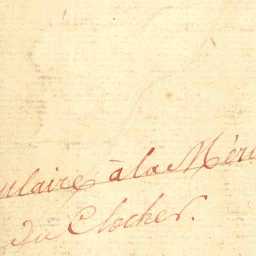 ulaire à la Méri
du Clocher.